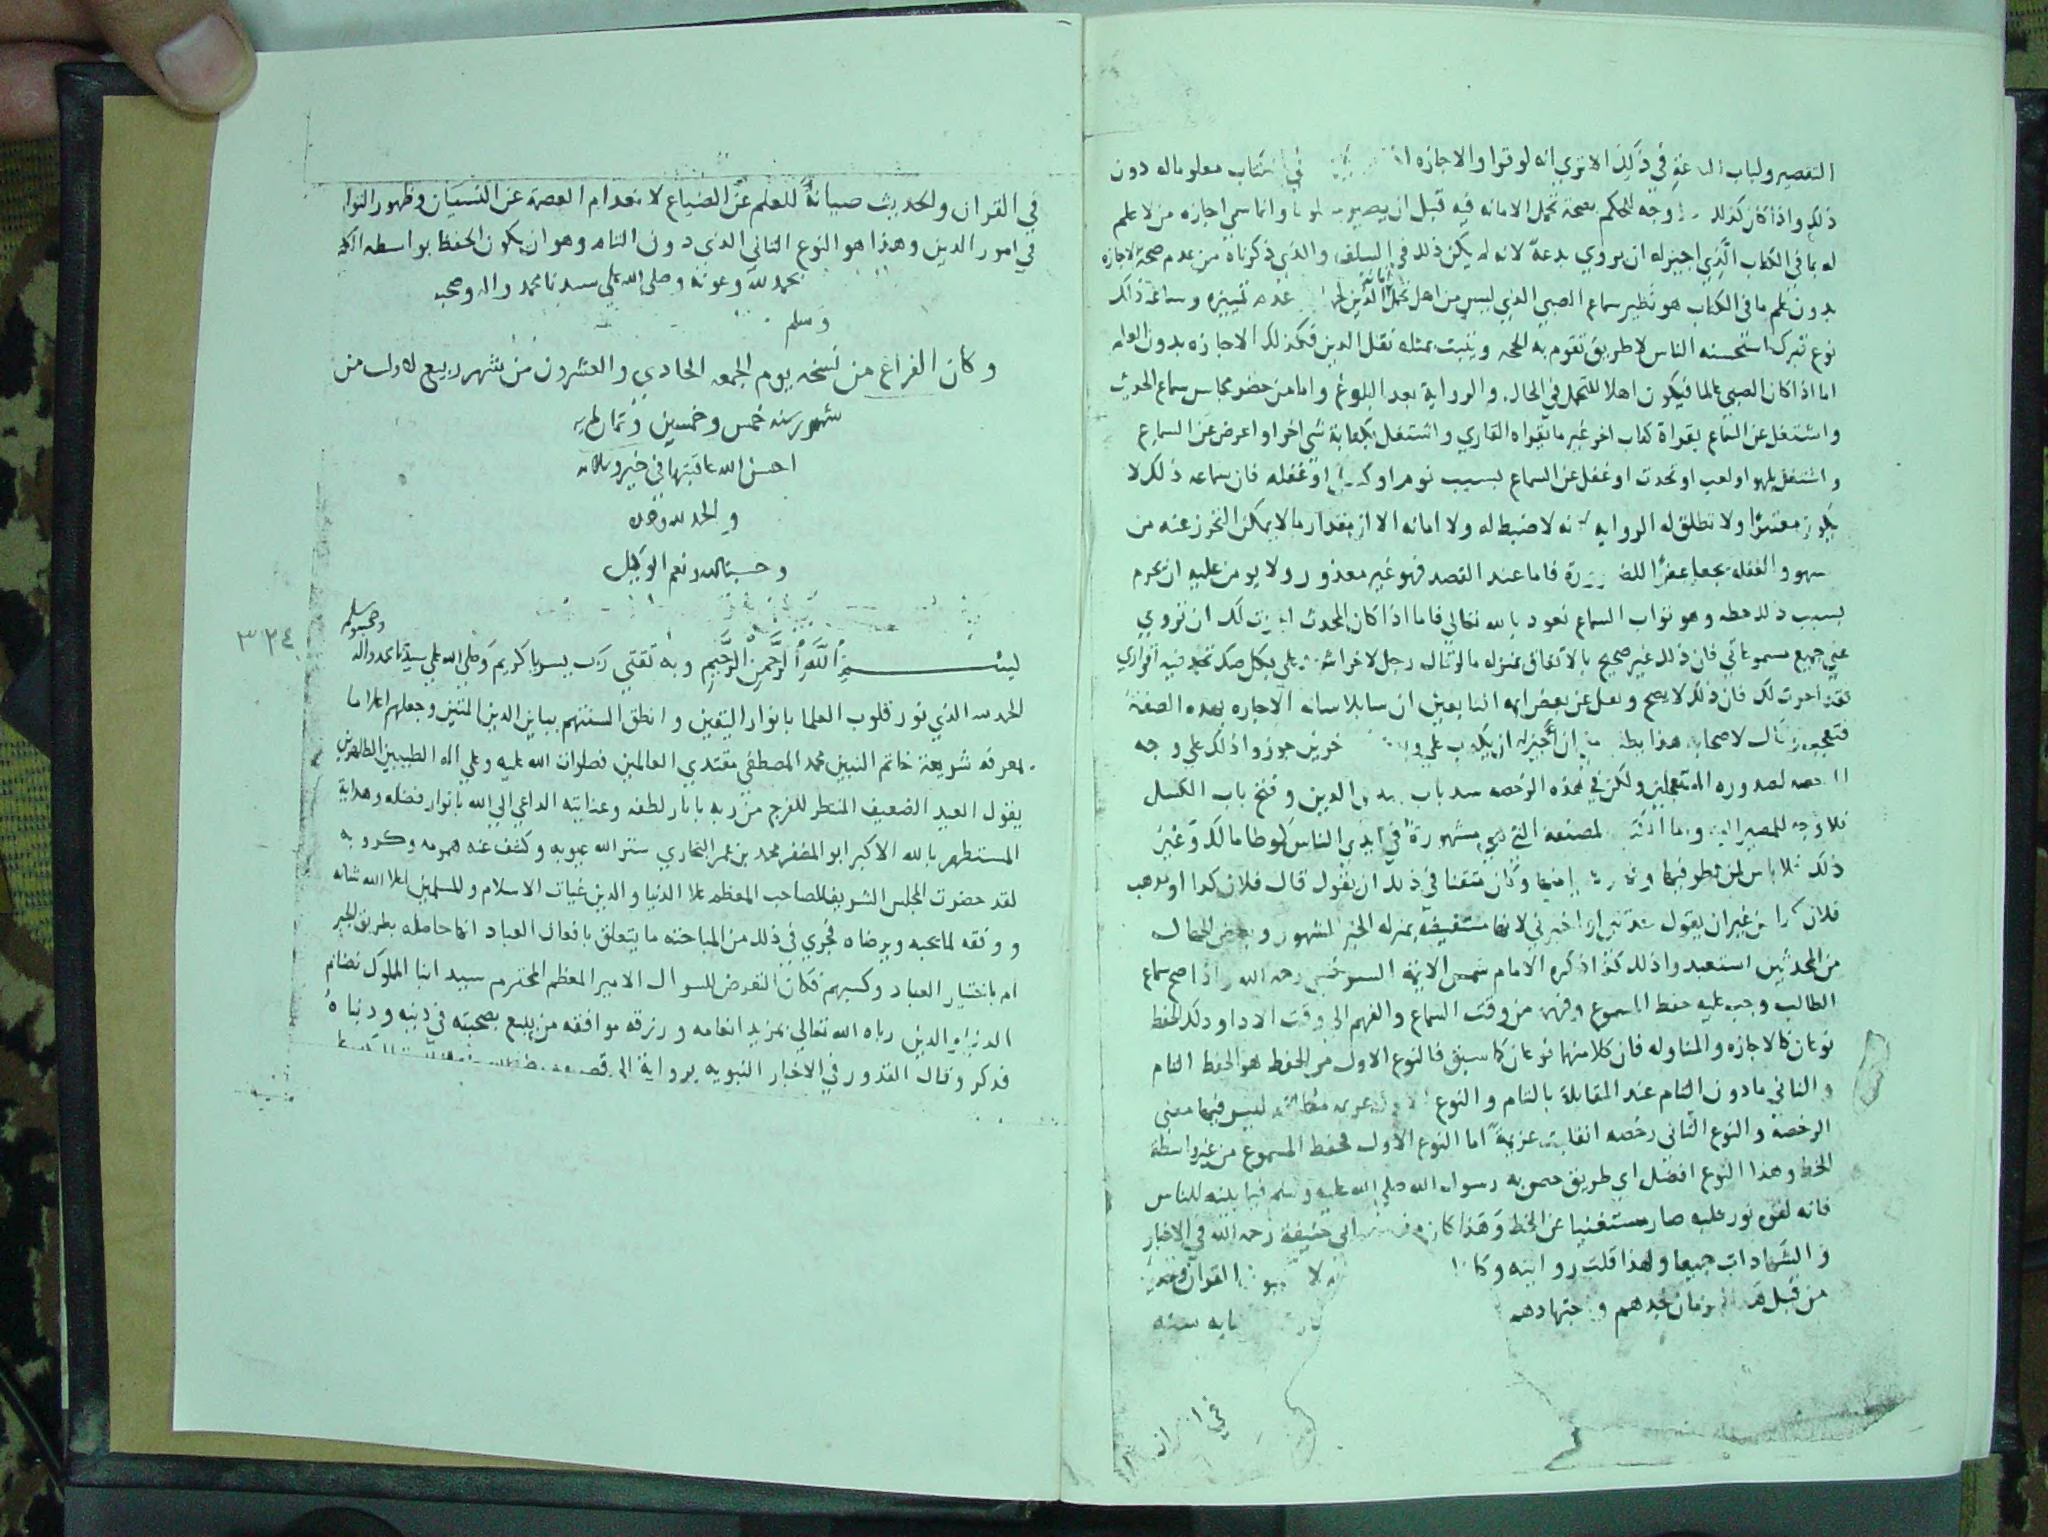 التقصير ولباب في ذلك الا تري انه لو قرا والاجازه في كتاب معلوما له دون
ذلك واذا كان كذلك وجه الحكم بصحة تحمل الامانه فيه قبل ان يصير وانما سمي اجازه من لا علم
له بما في الكتاب الذي اجيز له ان يروي بدعة لانه لم يكن ذلك في السلف والذي ذكرناه من عدم صحة الاجازه
بدون علم ما في الكتاب هو نظير سماع الصبي الذي ليس من اهل تحمل عدم تمييزه وسماعه ذلك
نوع تبرك استحسنه الناس لا طريق تقوم به الحجه ويثبت بمثله نقل الدين فكذلك الاجازه بدون العلم
اما اذا كان الصبي عالما فيكون اهلا للتحمل في الحال والرواية بعد البلوغ واما من حضر مجلس سماع الحديث
واشتغل عن السماع بقراة كتاب اخر غير ما يقراه القاري واشتغل بكتابة شي اخر او اعرض عن السماع
واشتغل بلهو او لعب او تحدث او غفل عن السماع بسبب نوم او او غفله فان سماعه ذلك لا
يكون معتبرا ولا تطلق له الروايه لانه لا ضبط له ولا امانه الا ان مقدار ما لا يمكن التحرز عنه من
سهو والغفله يجعل عفوا فاما عند القصد فهو غير معذور ولا يومن عليه ان يحرم
بسبب ذلك حظه وهو ثواب السماع نعوذ بالله تعالي فاما اذا كان المحدث اجزت لك ان تروي
عني جميع مسموعاتي فان ذلك غير صحيح بالاتفاق بمنزله ما لو قال رجل لاخر اشهد علي بكل صك تجد فيه اقراري
فقد اجزت لك فان ذلك لا يصح ونقل عن بعض ايمه التابعين ان سايلا ساله الاجازه بهذه الصفة
فتعجب وقال لاصحابه هذا يطلب مني ان اجيز له ان يكذب علي وبعض المتاخرين جوزوا ذلك علي وجه
الرخصه لضروره المستعجلين ولكن في هذه الرخصه سد باب الدين وفتح باب الكسل
فلا وجه للمصير اليه واما الكتب المصنفة التي هي مشهورة في ايدي الناس كموطا مالك وغير
ذلك فلا باس لمن نظر فيها وفهم منها وكان متقنا في ذلك ان يقول قال فلان كذا او مذهب
فلان كذا من غير ان يقول حدثني او اخبرني لانها مستفيضة بمنزله الخبر المشهور وبعض الجهال
من المحدثين استبعدوا ذلك كذا ذكره الامام شمس الايمه السرخسي رحمه الله واذا صح سماع
الطالب وجب عليه حفظ المسموع وفهمه من وقت السماع والفهم الي وقت الادا وذلك الحفظ
نوعان كالاجازه والمناوله فان كلا منهما نوعان كما سبق فالنوع الاول من الحفظ هو الحفظ التام
والثاني ما دون التام عند المقابلة بالتام والنوع الاول عزيمه مطلقه ليس فيها معني
الرخصة والنوع الثاني رخصه انقلبت عزيمة اما النوع الاول فحفظ المسموع من غير واسطة
الخط وهذا النوع افضل اي طريق خص به رسول الله صلي الله عليه وسلم فيما بلغه للناس
فانه لقوه نور قلبه صار مستغنيا عن الخط وهذا كان مذهب ابي حنيفة رحمه الله في الاخبار
والشهادات جميعا ولهذا قلت روايته وكا القرآن
من قبل جدهم واجتهادهم ايه سنه
في القران والحديث صيانة للعلم عن الضياع لانعدام العصمة عن النسيان وظهور التوا
في امور الدين وهذا هو النوع الثاني الذي دون التام وهو ان يكون الحفظ بواسطه
بحمد لله وعونه وصلي الله علي سيدنا محمد واله وصحبه
وسلم
وكان الفراغ من نسخه يوم الجمعه الحادي والعشرون من شهر ربيع الاول من
شهور سنه خمس وخمسين وثمان مايه
احسن الله عاقبتها في خير وعافيه
والحمد لله وحده
وحسبنا الله ونعم الوكيل
٣٢٤
وصحبه وسلم
بسم الله الرحمن الرحيم وبه ثقتي رب يسر يا كريم وصلي الله علي سيدنا محمد واله
الحمد لله الذي نور قلوب العلما بانوار اليقين وانطق السنتهم ببيان الدين المتين وجعلهم اعلاما
لمعرفه شريعة خاتم النبيين محمد المصطفي مقتدي العالمين فصلوات الله عليه وعلي اله الطيبين الطاهرين
يقول العبد الضعيف المنتظر للفرج من ربه باثار لطفه وعنايته الداعي الي الله بانوار فضله وهدايته
المستظهر بالله الاكبر ابو المظفر محمد بن عمر البخاري ستر الله عيوبه وكشف عنه همومه وكروبه
لقد حضرت المجلس الشريف للصاحب المعظم علا الدنيا والدين غياث الاسلام والمسلمين اعلا الله شانه
ووفقه لما يحبه ويرضاه فجري في ذلك من المباحثه ما يتعلق بافعال العباد انها حاصله بطريق الجبر
ام باختيار العباد وكسبهم فكان التعرض للسوال الامير المعظم المحترم سيد ابنا الملوك نظام
الدنيا والدين رباه الله تعالي بمزيد انعامه ورزقه موافقه من ينتفع بصحبته في دينه ودنياه
فذكر وقال القدور في الاخبار النبويه برواية